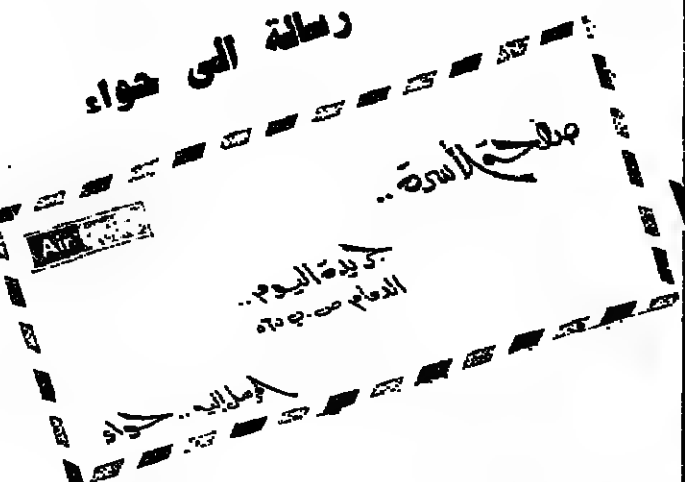 رسالة الى حواء
صفحة الأسرة..
Air
جريدة اليوم..
الدمام ص.ب ٥٦٥
حواء